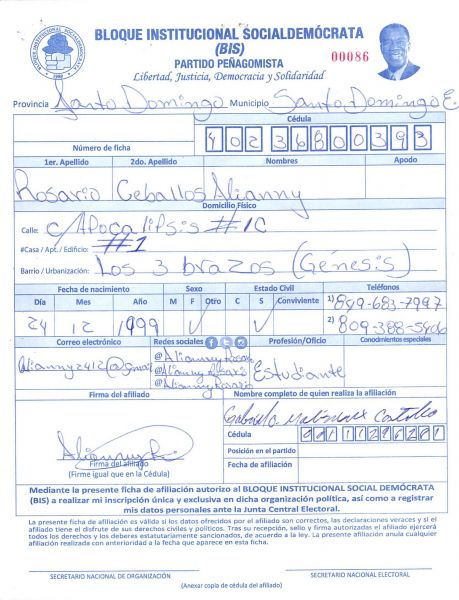 BLOQUE INSTITUCIONAL SOCIALDEMÓCRATA
(BIS)
PARTIDO PEÑAGOMISTA
00086
Libertad, Justicia, Democracia y Solidaridad
Provincia Santo Domingo Municipio Santo Domingo E.
Cédula
Número de ficha 40236800393
1er. Apellido 2do. Apellido Nombres Apodo
Rosario Ceballos Alianny
Domicilio Físico
Calle: C/ Apocalipsis #1C
#Casa / Apt. / Edificio: #1
Barrio / Urbanización: Los 3 brazos (Génesis)
Fecha de nacimiento Sexo Estado Civil Teléfonos
Día Mes Año M F Otro C S Conviviente 1) 849-683-7997
24 12 1999 ✓ ✓ 2) 809-388-5406
Correo electrónico Redes sociales Profesión/Oficio Conocimientos especiales
Alianny2412@gmail @Alianny Rosario
@Alianny Rosario Estudiante
@Alianny Rosario
Firma del afiliado Nombre completo de quien realiza la afiliación
Cédula
Posición en el partido
Firma del afiliado Fecha de afiliación
(Firme igual que en la Cédula)
Mediante la presente ficha de afiliación autorizo al BLOQUE INSTITUCIONAL SOCIAL DEMÓCRATA
(BIS) a realizar mi inscripción única y exclusiva en dicha organización política, así como a registrar
mis datos personales ante la Junta Central Electoral.
La presente ficha de afiliación es válida si los datos ofrecidos por el afiliado son correctos, las declaraciones veraces y si el
afiliado tiene el disfrute de sus derechos civiles y políticos. Tras su recepción, sello y firma autorizadas el afiliado ejercerá
todos los derechos y los deberes estatutariamente sancionados, de acuerdo a la ley. La presente afiliación anula cualquier
afiliación realizada con anterioridad a la fecha que aparece en esta ficha.
SECRETARIO NACIONAL DE ORGANIZACIÓN SECRETARIO NACIONAL ELECTORAL
(Anexar copia de cédula del afiliado)